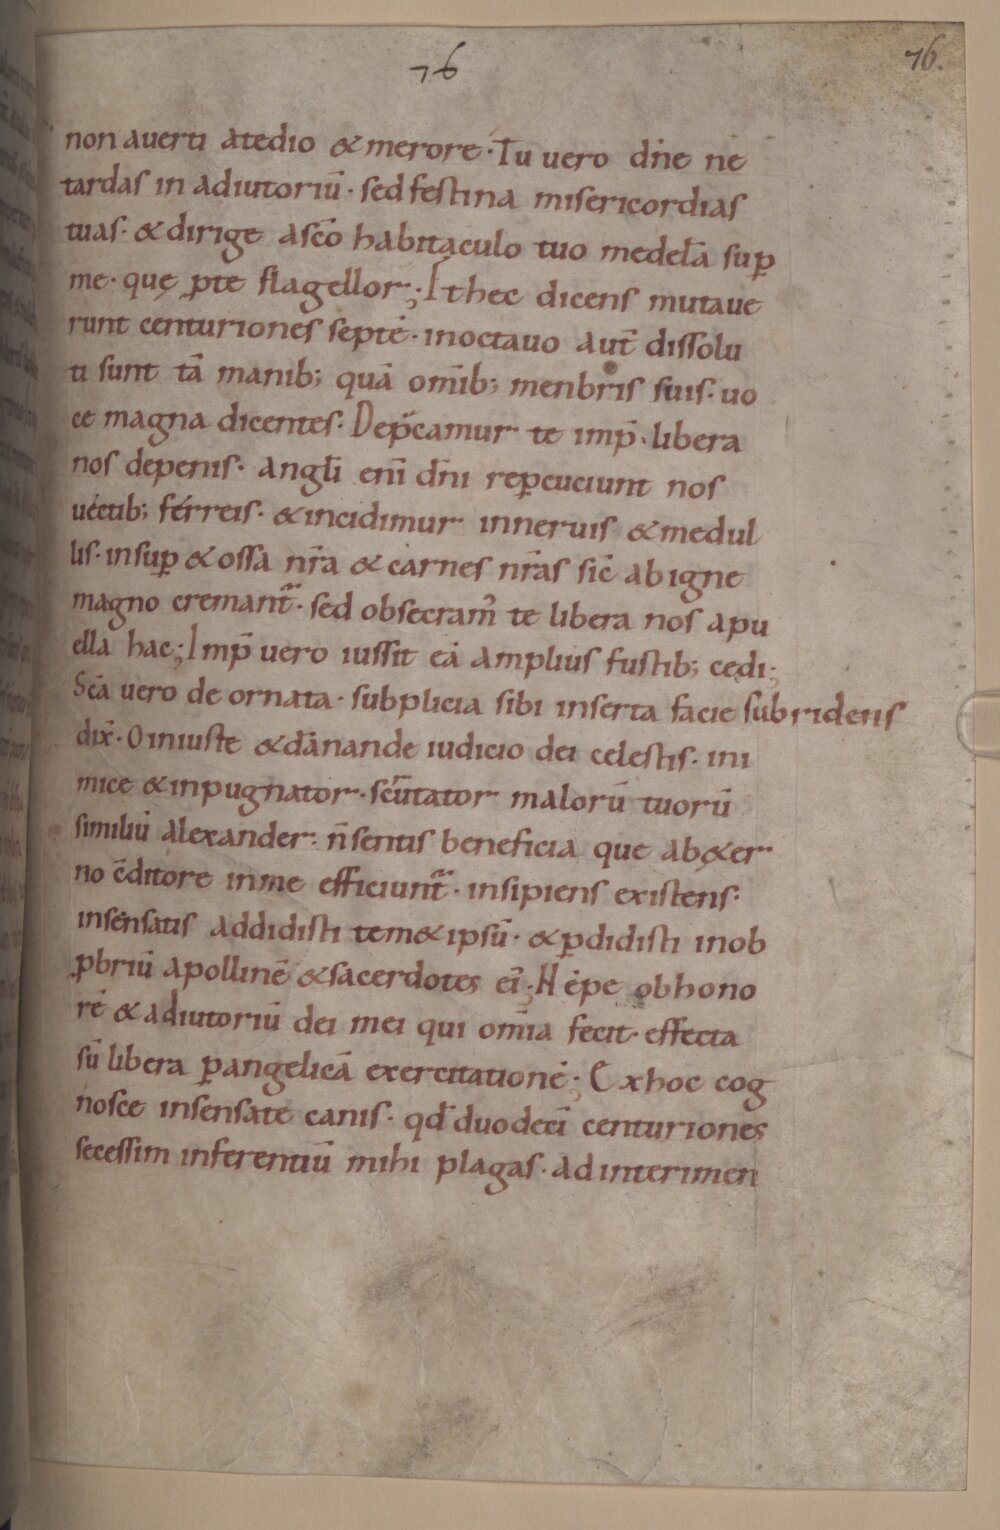 76
76.
non auerti atedio & merore· Tu uero dn̄e ne
tardas in adiutoriū· sed festina misericordias
tuas· & dirige asc̄o habitaculo tuo medel̄a suꝑ
me· quę ꝓte flagellor; It hec dicens mutaue
runt centuriones septē· inoctauo aut̄ dissolu
ti sunt tā manib; quā om̄ib; menbris suis· uo
ce magna dicentes· Dep̄camur te imp̄· libera
nos depenis· angl̄i eni̅ dn̄i reꝑcuciunt nos
uectib; férreis· & incidimur inneruis & medul
lis· insuꝑ & ossa nr̄a & carnes nr̄as sic̄ ab igne
magno cremant᷑· sed obsecram᷒ te libera nos apu
ella hac; Imp̄ uero iussit eā amplius fustib; cędi;
Sc̄a uero de ornata· subplicia sibi inserta facie subridens
dix̄· O iniuste & dānande iudicio dei celestis· ini
mice & inpugnator· scr̄utator malorū tuorū
similiū alexander· n̄ sentis beneficia que ab&er
no c̄ditore inme efficiunt᷑· insipiens existens·
insensatis addidisti tem&ipsū· & ꝑdidisti inob
ꝓbriū apollinē & sacerdotes ei᷒· Nēpe obhono
rē & adiutoriū dei mei qui om̄ia fecit· effecta
sū libera ꝑangelicā exercitationē; Exhoc cog
nosce insensate canis· qd̄ duodeci̅ centuriones
secessim inferentiū mihi plagas· ad interimen